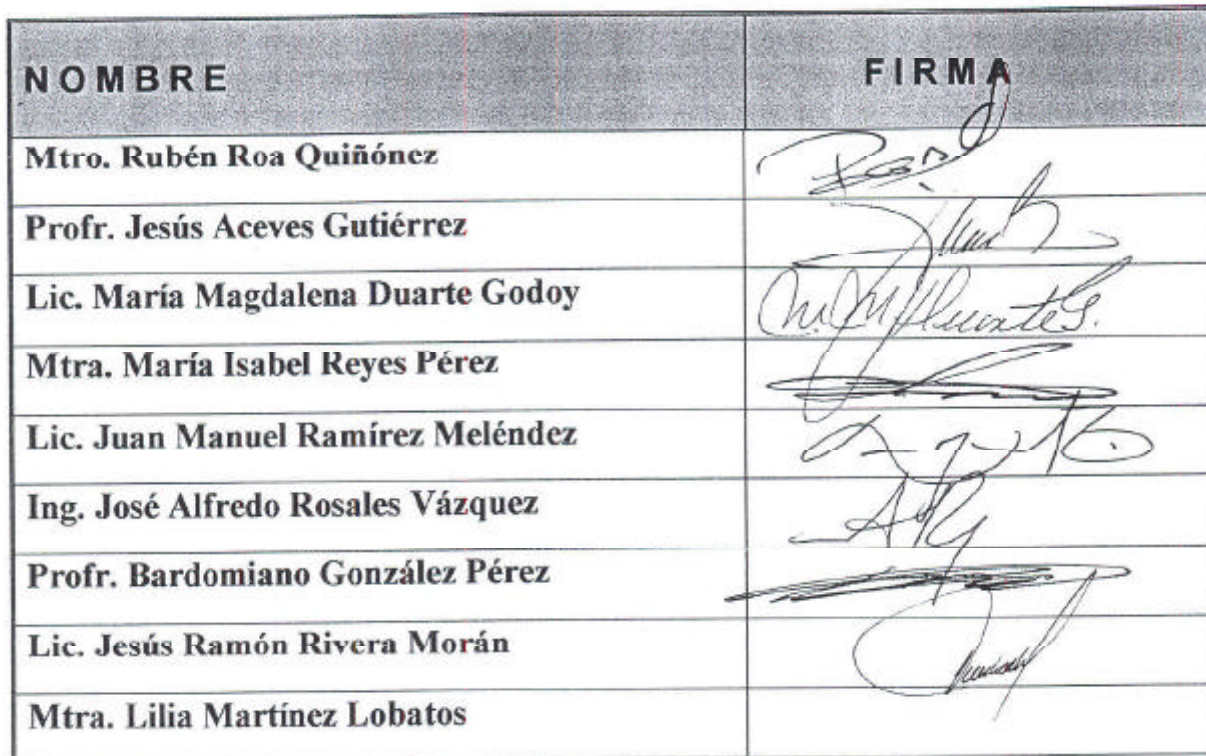 NOMBRE FIRMA
Mtro. Rubén Roa Quiñónez
Profr. Jesús Aceves Gutiérrez
Lic. María Magdalena Duarte Godoy M. M Duarte G.
Mtra. María Isabel Reyes Pérez
Lic. Juan Manuel Ramírez Meléndez
Ing. José Alfredo Rosales Vázquez
Profr. Bardomiano González Pérez
Lic. Jesús Ramón Rivera Morán
Mtra. Lilia Martínez Lobatos